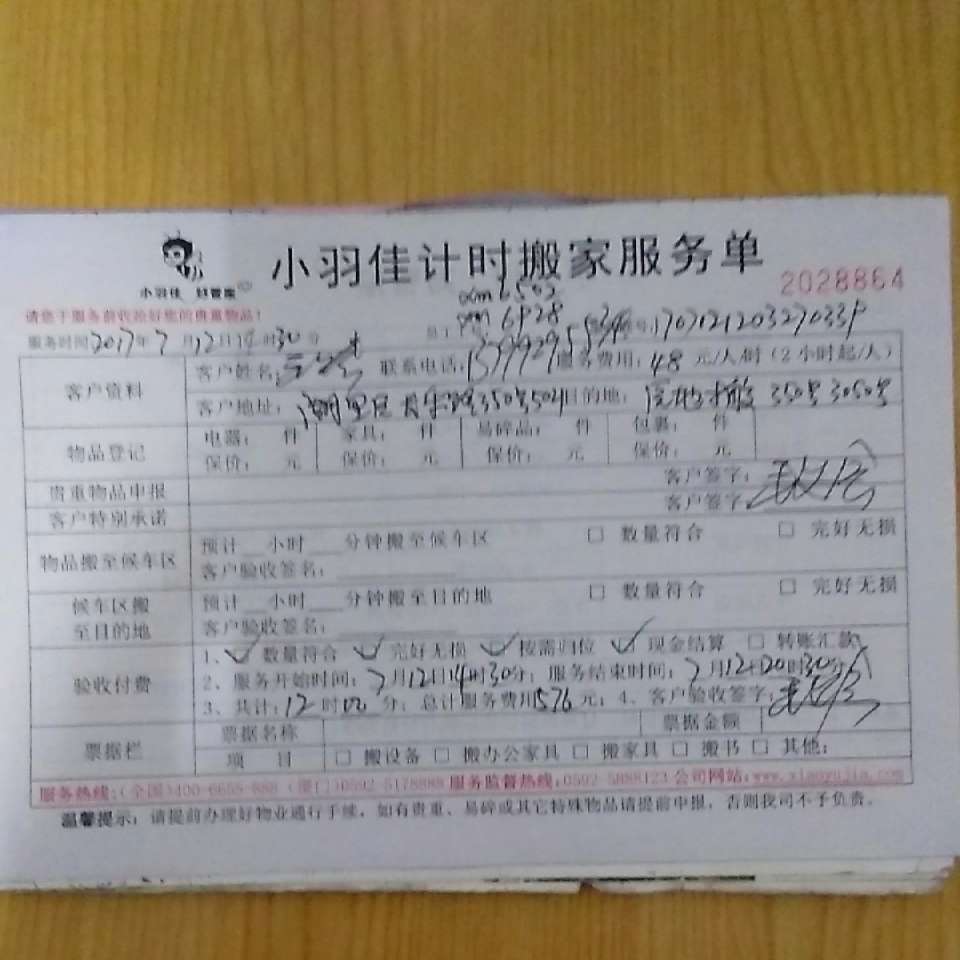 小羽佳计时搬家服务单
小羽佳
2028864
xm6502
xm6928
请您于服务前收拾好您的贵重物品!
服务时间2017年7月12日14时30分 1707121203270339
客户资料
客户姓名: 联系电话: 服务费用:48元/人/时(2小时起/人)
客户地址: 湖里区 350号504 目的地: 350号3050号
物品登记
电器: 件 家具: 件 易碎品: 件 包裹: 件
保价: 元 保价: 元 保价: 元 保价: 元
贵重物品申报 客户签字:
客户特别承诺 客户签字:
物品搬至候车区
预计__小时___分钟搬至候车区 □ 数量符合 □ 完好无损
客户验收签名:
候车区搬至目的地
预计__小时___分钟搬至目的地 □ 数量符合 □ 完好无损
客户验收签名:
验收付费
1、☑ 数量符合 ☑ 完好无损 ☑ 按需归位 ☑ 现金结算 □ 转账汇款
2、服务开始时间:7月12日14时30分; 服务结束时间:7月12日20时30分
3、共计:12时00分; 总计服务费用576元; 4、客户验收签字:
票据栏
票据名称 票据金额
项 目 □ 搬设备 □ 搬办公家具 □ 搬家具 □ 搬书 □ 其他:
服务热线:(全国)400-6655-888 (厦门)0592-5178888 服务监督热线:0592-5888123 公司网站:www.xiaoyujia.com
温馨提示:请提前办理好物业通行手续,如有贵重、易碎或其它特殊物品请提前申报,否则我司不予负责。